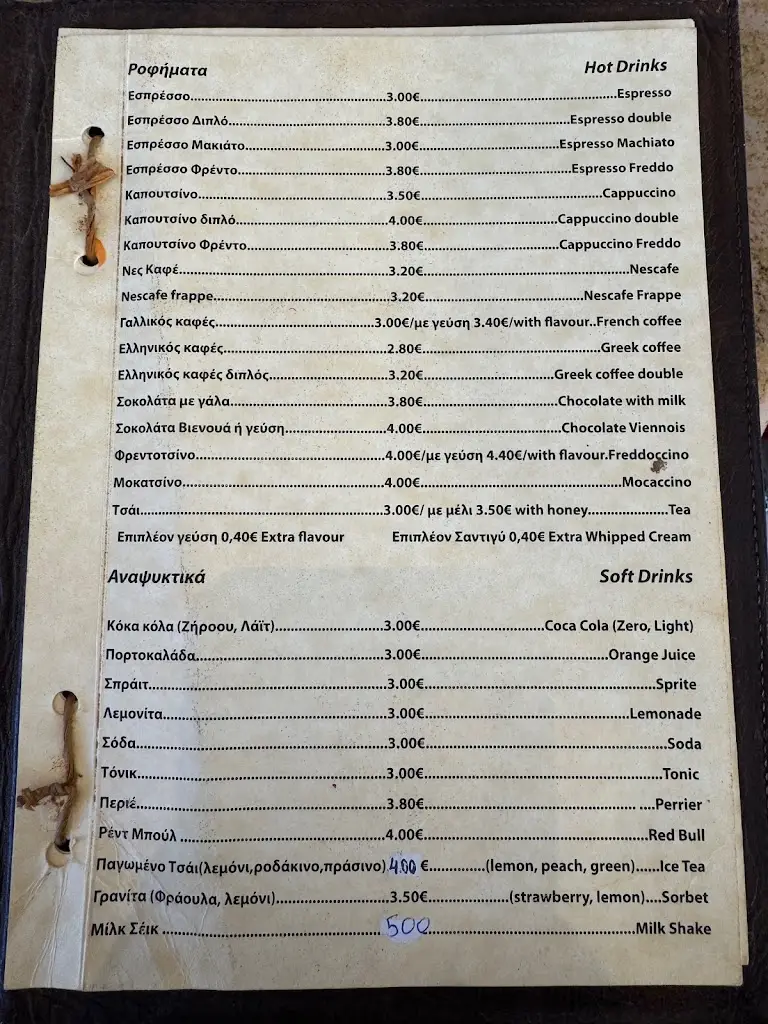 Ροφήματα Hot Drinks
Εσπρέσσο..............................................3.00€..............................................Espresso
Εσπρέσσο Διπλό....................................3.80€....................................Espresso double
Εσπρέσσο Μακιάτο................................3.00€................................Espresso Machiato
Εσπρέσσο Φρέντο..................................3.80€..................................Espresso Freddo
Καπουτσίνο...........................................3.50€...........................................Cappuccino
Καπουτσίνο διπλό..................................4.00€................................Cappuccino double
Καπουτσίνο Φρέντο................................3.80€................................Cappuccino Freddo
Νες Καφέ................................................3.20€................................................Nescafe
Nescafe frappe.......................................3.20€.....................................Nescafe Frappe
Γαλλικός καφές.....................................3.00€/με γεύση 3.40€/with flavour..French coffee
Ελληνικός καφές....................................2.80€.........................................Greek coffee
Ελληνικός καφές διπλός...........................3.20€..............................Greek coffee double
Σοκολάτα με γάλα..................................3.80€..............................Chocolate with milk
Σοκολάτα Βιενουά ή γεύση.......................4.00€................................Chocolate Viennois
Φρεντοτσίνο..........................................4.00€/με γεύση 4.40€/with flavour.Freddoccino
Μοκατσίνο............................................4.00€.............................................Mocaccino
Τσάι......................................................3.00€/ με μέλι 3.50€ with honey...................Tea
Επιπλέον γεύση 0,40€ Extra flavour Επιπλέον Σαντιγύ 0,40€ Extra Whipped Cream
Αναψυκτικά Soft Drinks
Κόκα κόλα (Ζήροου, Λάϊτ).........................3.00€............................Coca Cola (Zero, Light)
Πορτοκαλάδα.........................................3.00€..........................................Orange Juice
Σπράιτ...................................................3.00€...................................................Sprite
Λεμονίτα................................................3.00€..............................................Lemonade
Σόδα.....................................................3.00€.....................................................Soda
Τόνικ.....................................................3.00€.....................................................Tonic
Περιέ.....................................................3.80€............................................... ....Perrier
Ρέντ Μπούλ ............................................4.00€..................................................Red Bull
Παγωμένο Τσάι(λεμόνι,ροδάκινο,πράσινο) 4.00 €..............(lemon, peach, green)......Ice Tea
Γρανίτα (Φράουλα, λεμόνι)........................3.50€....................(strawberry, lemon)....Sorbet
Μίλκ Σέικ ................................................500..................................................Milk Shake